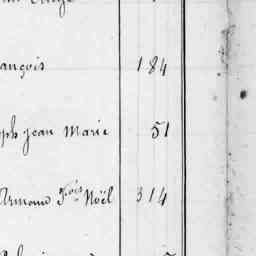 ançois 184
ph Jean Marie 51
Armand Fçois Noël 314